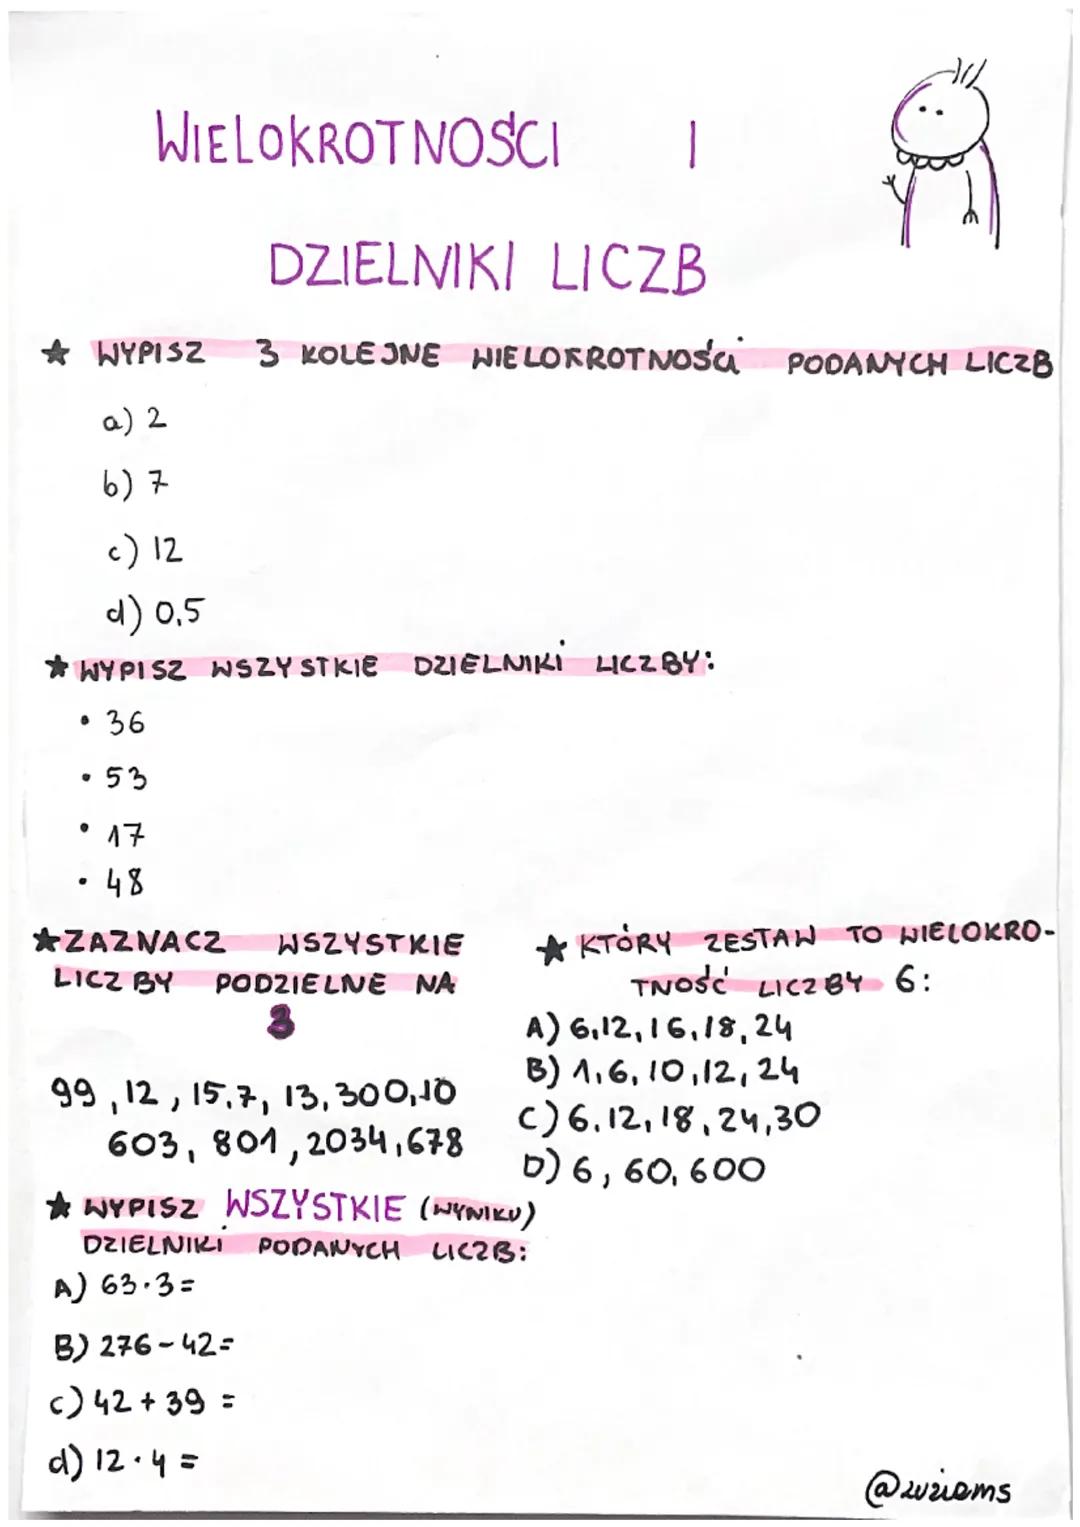 WIELOKROTNOŚCI I
DZIELNIKI LICZB
★ WYPISZ 3 KOLEJNE WIELOKROTNOŚCi PODANYCH LICZB
a) 2
b) 7
c) 12
d) 0,5
★ WYPISZ WSZYSTKIE DZIELNIKi LICZBY:
• 36
• 53
• 17
• 48
★ ZAZNACZ WSZYSTKIE
LICZBY PODZIELNE NA
3
99, 12, 15, 7, 13, 300, 10
603, 801, 2034, 678
★ KTÓRY ZESTAW TO WIELOKRO-
TNOŚĆ LICZBY 6:
A) 6, 12, 16, 18, 24
B) 1, 6, 10, 12, 24
C) 6, 12, 18, 24, 30
D) 6, 60, 600
★ WYPISZ WSZYSTKIE (WYNIKU)
DZIELNIKI PODANYCH LICZB:
A) 63·3=
B) 276-42=
c) 42+39=
d) 12·4=
@zuziams